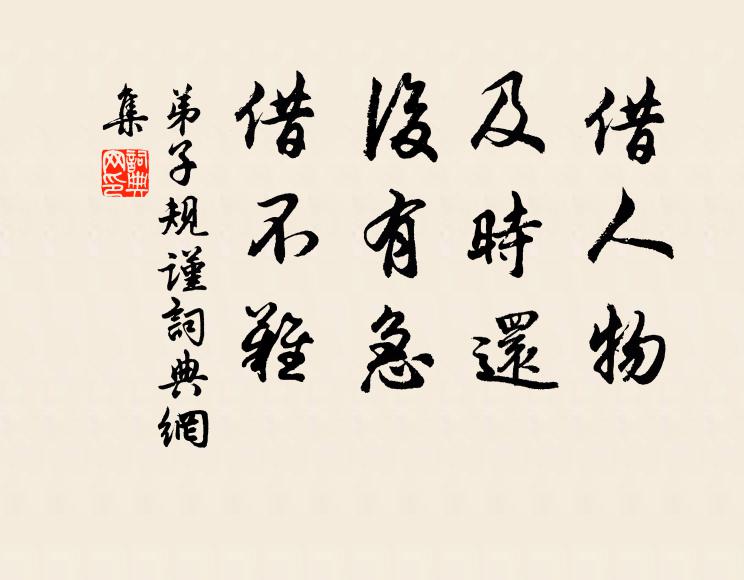 借人物
及時還
後有急
借不難
弟子規謹詞典網
集
詞典
网印